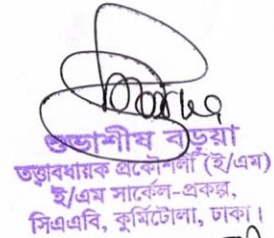 শুভাশীষ বড়ুয়া
তত্ত্বাবধায়ক প্রকৌশলী (ই/এম)
ই/এম সার্কেল-প্রকল্প,
সিএএবি, কুর্মিটোলা, ঢাকা।